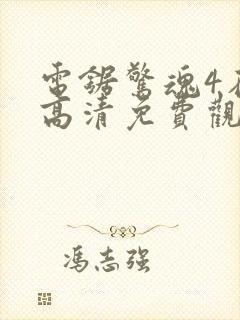 電鋸驚魂4
高清免費觀
馮志强